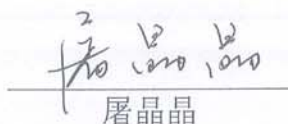 屠晶晶
屠晶晶